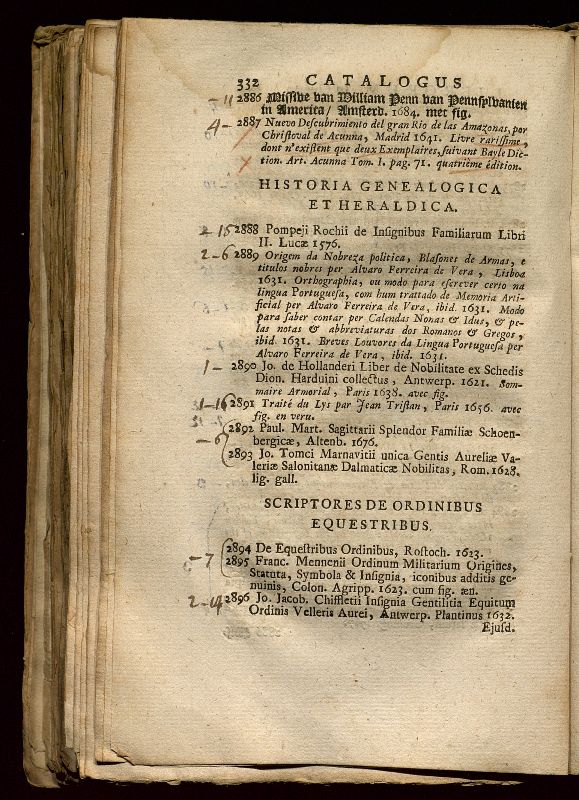 332 CATALOGUS
- 11 2886 Missive van William Penn van Pennsylvanien
in America/ Amsterd. 1684. met fig.
4 - 2887 Nuevo Descubrimiento del gran Rio de las Amazonas, por
Christoval de Acunna, Madrid 1641. Livre rarissime,
dont n'existent que deux Exemplaires, suivant Bayle Dic-
tion. Art. Acunna Tom. I. pag. 71. quatriéme édition.
HISTORIA GENEALOGICA
ET HERALDICA.
2 - 15 2888 Pompeji Rochii de Insignibus Familiarum Libri
II. Lucæ 1576.
2 - 6 2889 Origem da Nobreza politica, Blasones de Armas, e
titulos nobres per Alvaro Ferreira de Vera, Lisboa
1631. Orthographia, ou modo para escrever certo na
lingua Portuguesa, com hum trattado de Memoria Arti-
ficial per Alvaro Ferreira de Vera, ibid. 1631. Modo
para saber contar per Calendas Nonas & Idus, & pe-
las notas & abbreviaturas dos Romanos & Gregos,
ibid 1631. Breves Louvores da Lingua Portuguesa per
Alvaro Ferreira de Vera, ibid. 1631.
1 - 2890 Jo. de Hollanderi Liber de Nobilitate ex Schedis
Dion. Harduini collectus, Antwerp. 1621. Som-
maire Armorial, Paris 1638. avec fig.
1 - 16 2891 Traité du Lys par Jean Tristan, Paris 1656. avec
fig. en veru.
2892 Paul. Mart. Sagittarii Splendor Familiæ Schoen-
- 6 bergicæ, Altenb. 1676.
2893 Jo. Tomci Marnavitii unica Gentis Aureliæ Va-
leriæ Salonitanæ Dalmaticæ Nobilitas, Rom. 1628.
lig. gall.
SCRIPTORES DE ORDINIBUS
EQUESTRIBUS.
2894 De Equestribus Ordinibus, Rostoch. 1623.
- 7 2895 Franc. Mennenii Ordinum Militarium Origines,
Statuta, Symbola & Insignia, iconibus additis ge-
nuinis, Colon. Agripp. 1623. cum fig. æn.
2 - 14 2896 Jo. Jacob. Chiffletii Insignia Gentilitia Equitum
Ordinis Velleris Aurei, Antwerp. Plantinus 1632.
Ejusd.